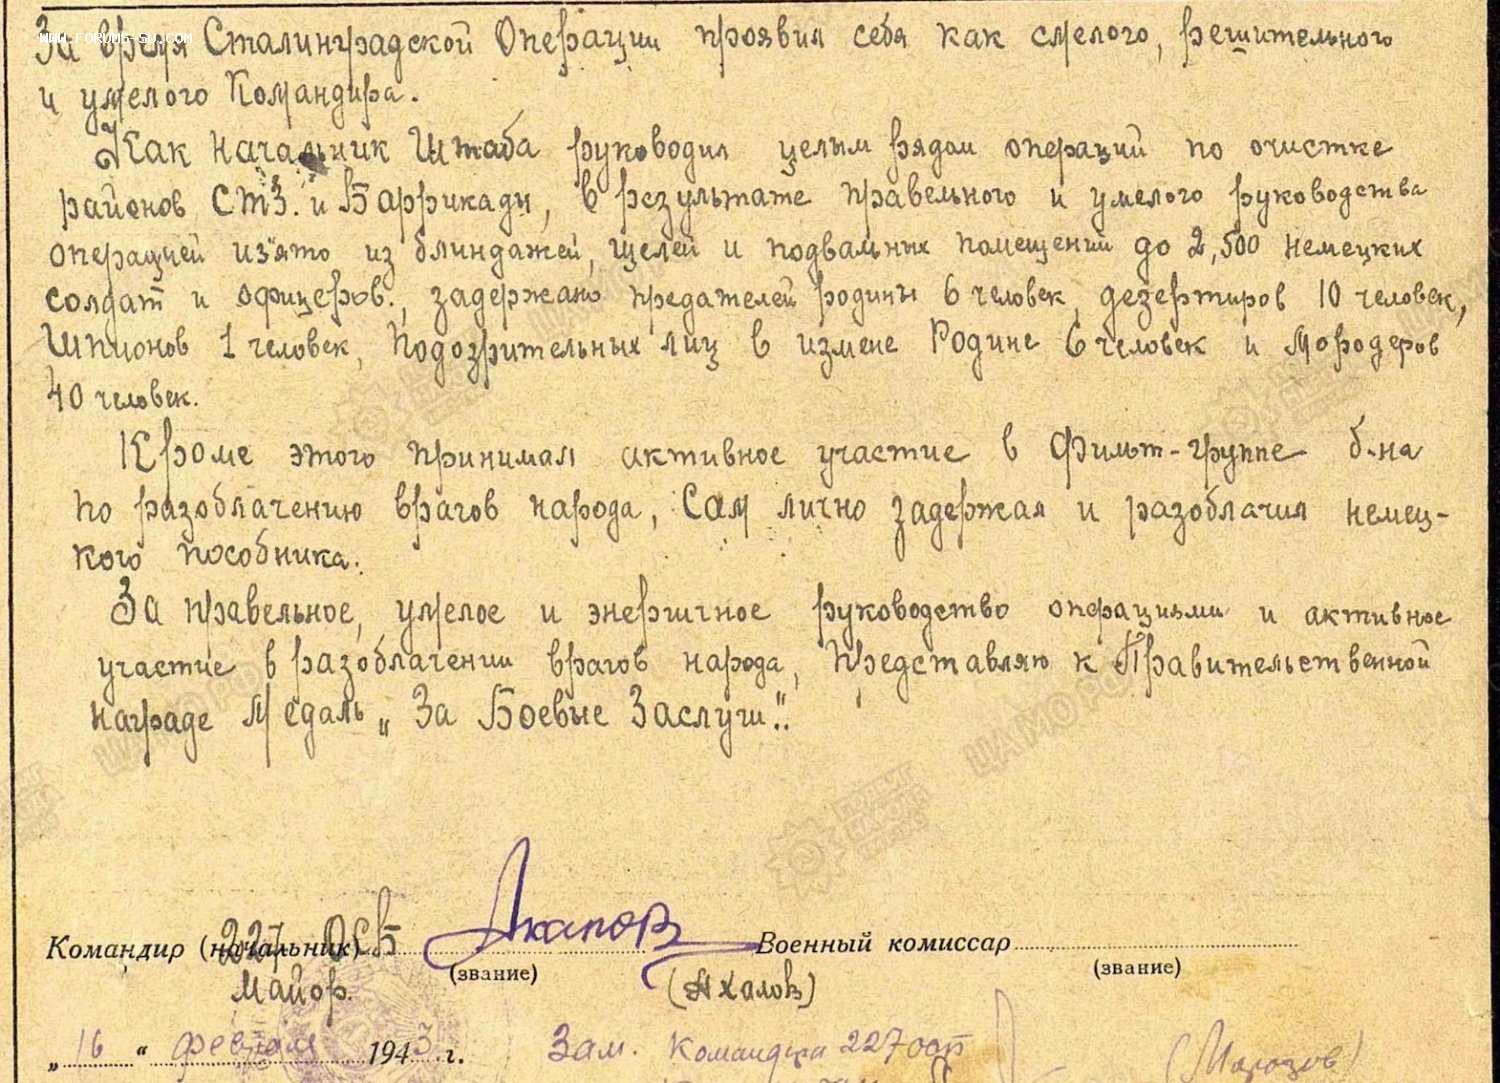 WWW.FORUMS-SU.COM
За время Сталинградской Операции проявил себя как смелого, решительного
и умелого Командира.
Как Начальник Штаба руководил целым рядом операций по очистке
районов СТЗ. и Баррикады, в результате правельного и умелого руководства
операцией из'ято из блиндажей, щелей и подвальных помещений до 2,500 немецких
солдат и офицеров., задержано предателей родины 6 человек, дезертиров 10 человек,
Шпионов 1 человек, Подозрительных лиц в измене Родине 6 человек и Мородеров
40 человек.
Кроме этого принимал активное участие в Фильт-группе б-на
по разоблачению врагов народа, Сам лично задержал и разоблачил немец-
кого пособника.
За правельное, умелое и энергичное руководство операциями и активное
участие в разоблачении врагов народа, Представляю к Правительственной
награде Медаль „За Боевые Заслуги".
Командир (начальник) 227 ОСБ Военный комиссар
(звание) (звание)
Майор. (Ахапов)
„16" февраля 1943 г. Зам. Командира 227 (Морозов)
ЦАМО РФ